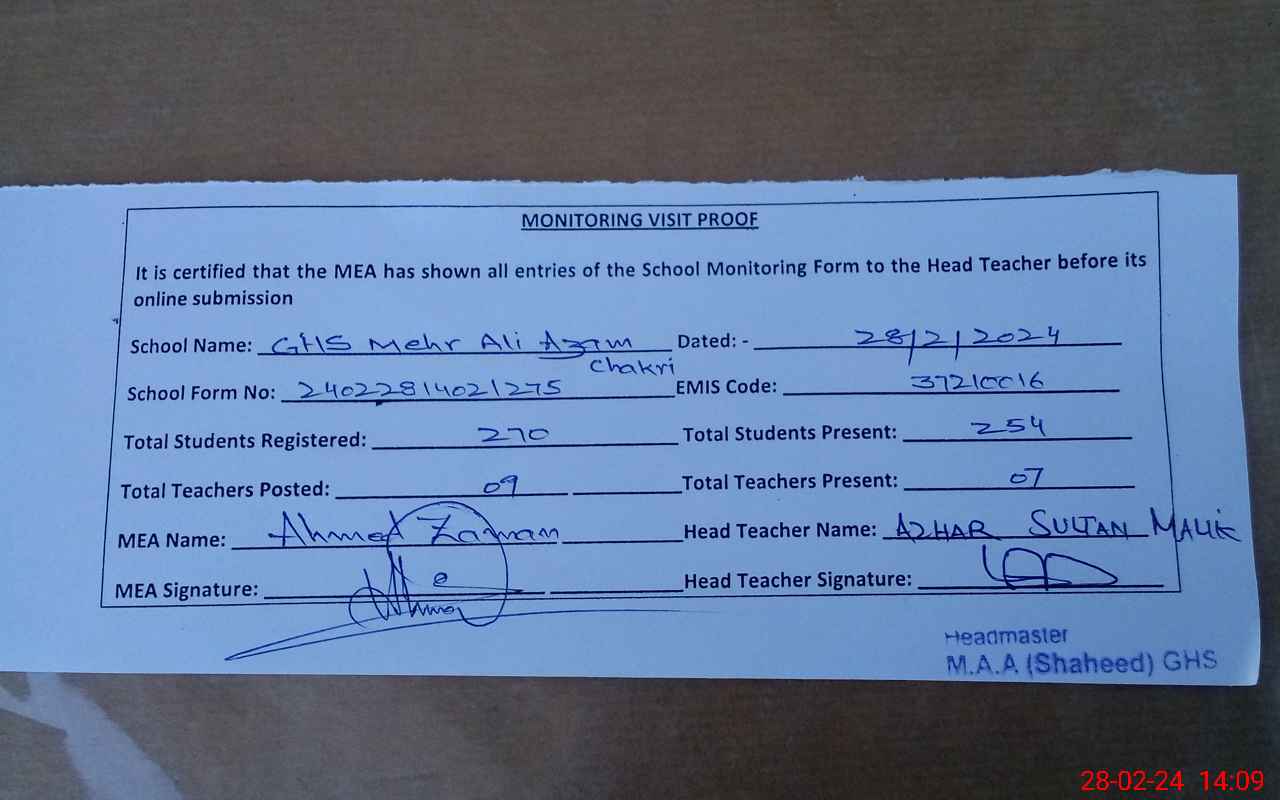 MONITORING VISIT PROOF
It is certified that the MEA has shown all entries of the School Monitoring Form to the Head Teacher before its
online submission
School Name: GHS Mehr Ali Azam Chakri Dated: - 28/2/2024
School Form No: 24022814021275 EMIS Code: 37210016
Total Students Registered: 270 Total Students Present: 254
Total Teachers Posted: 09 Total Teachers Present: 07
MEA Name: Ahmed Zaman Head Teacher Name: AZHAR SULTAN MALIK
MEA Signature: Head Teacher Signature:
Headmaster
M.A.A (Shaheed) GHS
28-02-24 14:09